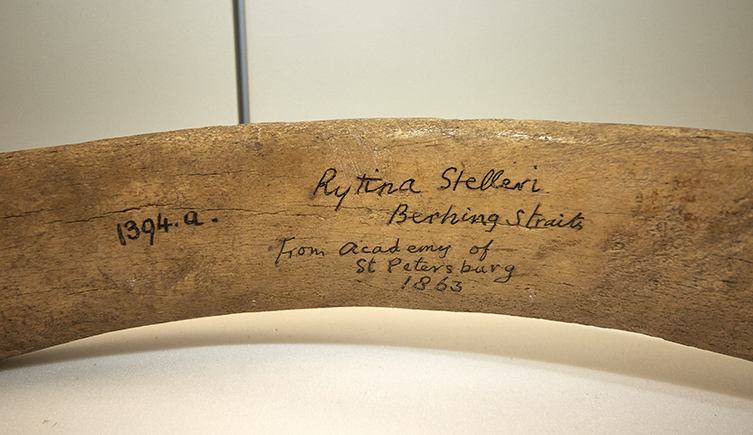 Rytina Stelleri
Berhing Straits
1394.a.
From Academy of
St Petersburg
1863